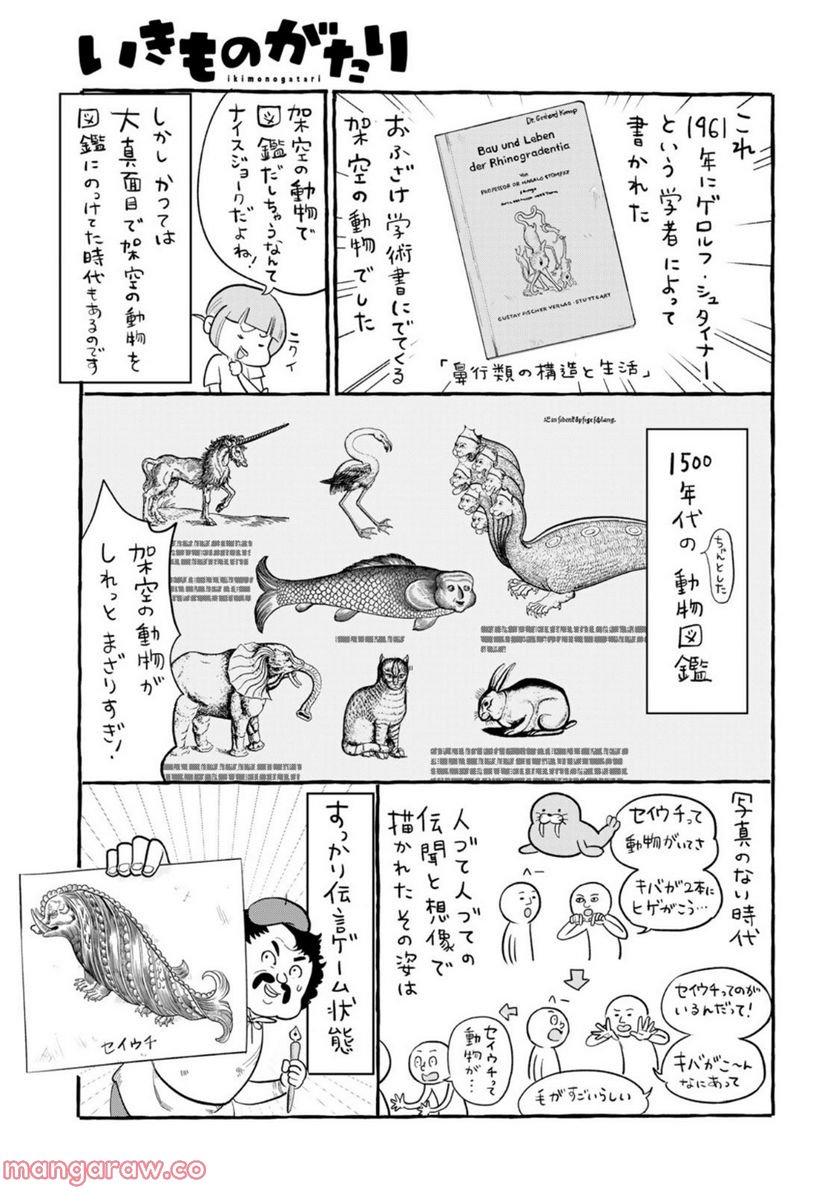 いきものがたり
ikimonogatari
これ
1961年にゲロルフ・シュタイナー
という学者によって
書かれた
Dr. Gerolf Kamp
Bau und Leben
der Rhinogradentia
von
PROFESSOR DR HARALD STÜMPKE
GUSTAV FISCHER VERLAG · STUTTGART
「鼻行類の構造と生活」
おふざけ学術書にでてくる
架空の動物でした
架空の動物で
図鑑だしちゃうなんて
ナイスジョークだよね!
ニクイ
しかし かつては
大真面目で架空の動物を
図鑑にのっけてた時代もあるのです
1500年代の動物図鑑
ちゃんとした
架空の動物が
しれっと まざりすぎ!
写真のない時代
セイウチって
動物がいてさ
キバが2本に
ヒゲがこう…
へー
セイウチってのが
いるんだって!
キバがこ〜ん
なにあって
へー
毛がすごいらしい
セイウチって
動物が…
人づて人づての
伝聞と想像で
描かれたその姿は
すっかり伝言ゲーム状態
セイウチ
mangaraw.co